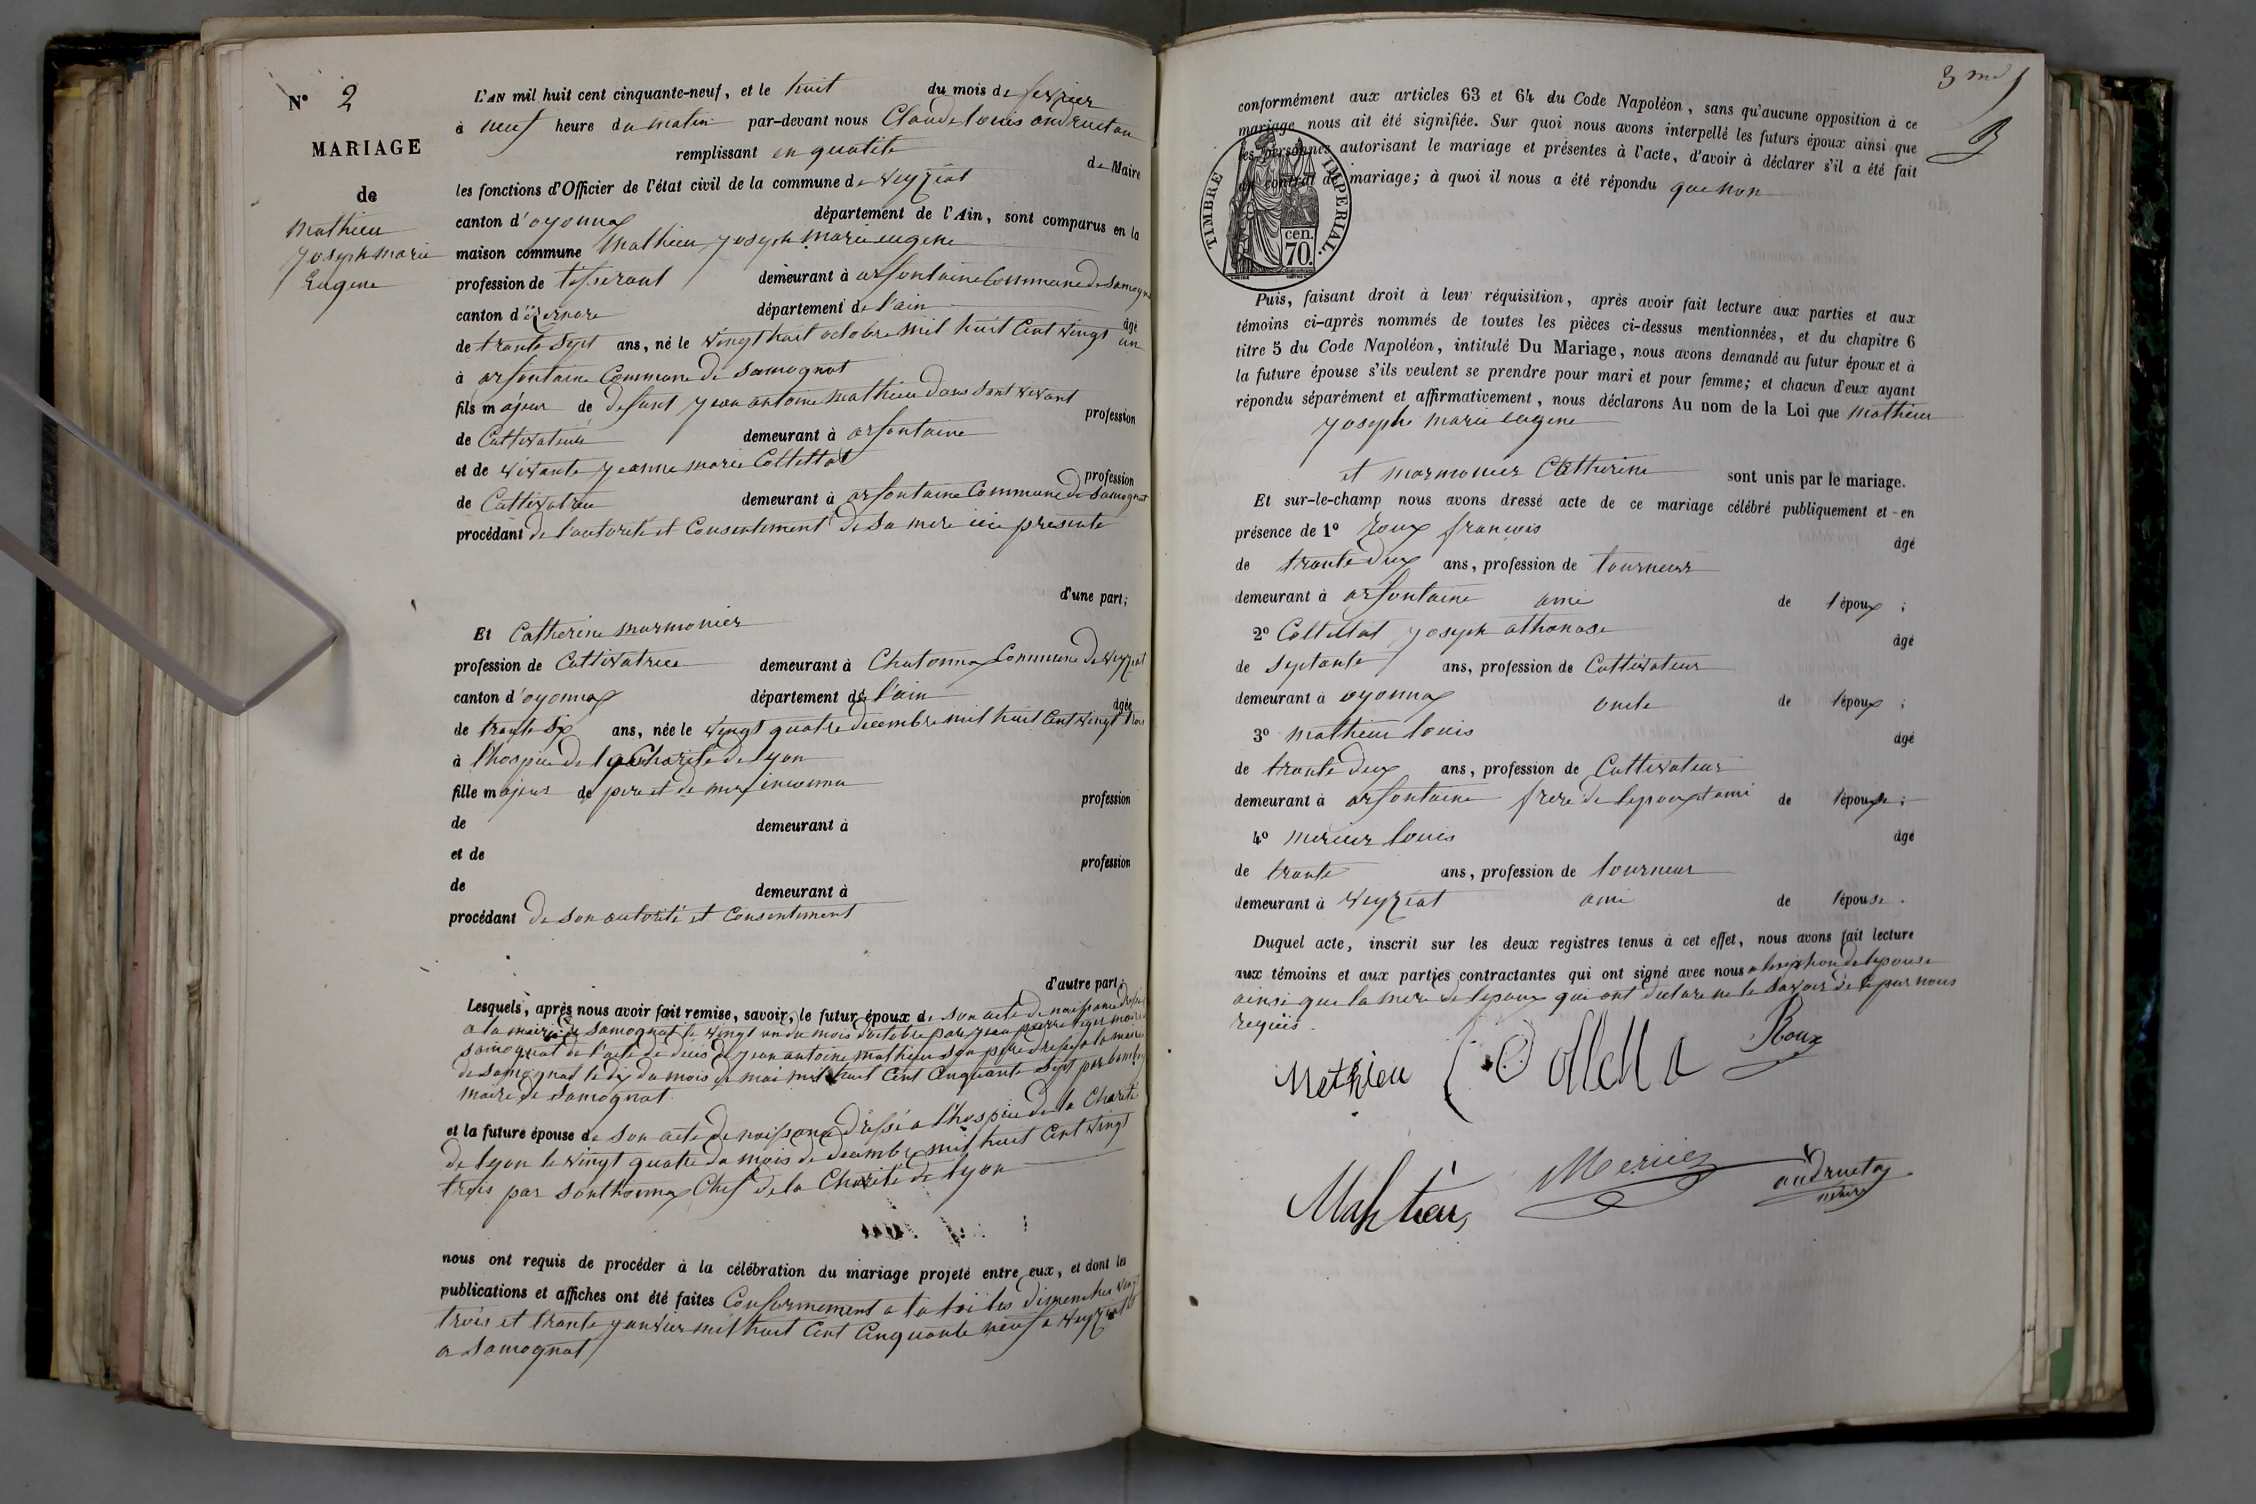 N° 2
MARIAGE
de
Mathieu
Joseph marie
Eugene
L'AN mil huit cent cinquante-neuf, et le huit du mois de fevrier
à neuf heure du matin par-devant nous Claude louis andruetan
remplissant en qualité de Maire
les fonctions d'Officier de l'état civil de la commune de veyziat
canton d'oyonnax département de l'Ain, sont comparus en la
maison commune Mathieu joseph marie eugene
profession de tisserant demeurant à arfontaine Commune de Samognat
canton d'izernore département de l'ain âgé
de trante sept ans, né le vingt huit octobre mil huit Cent vingt un
à arfontaine Commune de Samognat
fils majeur de defunt jean antoine mathieu dans sont vivant profession
de Cultivateur demeurant à arfontaine
et de vivante jeanne marie Collettat profession
de Cultivatrice demeurant à arfontaine Commune de Samognat
procédant de l'autorité et Consentement de sa mere icie presente
d'une part;
Et Catherine marmonier
profession de Cultivatrice demeurant à Chatonnax Commune de veyziat
canton d'oyonnax département de l'ain âgée
de trante six ans, née le vingt quatre decembre mil huit Cent vingt trois
à l'hospice de la Charité de lyon
fille majeur de pere et de mere inconnu profession
de demeurant à
et de profession
de demeurant à
procédant de son autorité et Consentement
d'autre part;
Lesquels, après nous avoir fait remise, savoir, le futur époux de son acte de naissance dressé
a la mairie de Samognat le vingt un du mois d'octobre par jean pierre maire
Samognat de l'acte de deces de jean antoine mathieu son pere dressé a la mairie
de Samognat le dix du mois de mai mil huit Cent Cinquante sept par
maire de Samognat
et la future épouse de son acte de naissance dressé a l'hospice de la Charité
de lyon le vingt quatre du mois de decembre mil huit Cent vingt
trois par sonthonnax Chef de la Charité de lyon
nous ont requis de procéder à la célébration du mariage projeté entre eux, et dont les
publications et affiches ont été faites Conformement a la loi les dimenches vingt
trois et trante janvier mil huit Cent Cinquante neuf a veyziat et
a Samognat
3
conformément aux articles 63 et 64 du Code Napoléon, sans qu'aucune opposition à ce
mariage nous ait été signifiée. Sur quoi nous avons interpellé les futurs époux ainsi que
les personnes autorisant le mariage et présentes à l'acte, d'avoir à déclarer s'il a été fait
un contrat de mariage; à quoi il nous a été répondu que non
TIMBRE IMPERIAL.
cen.
70.
Puis, faisant droit à leur réquisition, après avoir fait lecture aux parties et aux
témoins ci-après nommés de toutes les pièces ci-dessus mentionnées, et du chapitre 6
titre 5 du Code Napoléon, intitulé Du Mariage, nous avons demandé au futur époux et à
la future épouse s'ils veulent se prendre pour mari et pour femme; et chacun d'eux ayant
répondu séparément et affirmativement, nous déclarons Au nom de la Loi que Mathieu
josephe marie eugene
et marmonier Catherine sont unis par le mariage.
Et sur-le-champ nous avons dressé acte de ce mariage célébré publiquement et en
présence de 1° Roux francois âgé
de trante deux ans, profession de tourneur
demeurant à arfontaine ami de l'époux;
2° Collettat joseph athanase âgé
de septante ans, profession de Cultivateur
demeurant à oyonnax oncle de l'époux;
3° mathieu louis âgé
de trante deux ans, profession de Cultivateur
demeurant à arfontaine frere de lepoux et ami de l'épouse;
4° mercier louis âgé
de trante ans, profession de tourneur
demeurant à veyziat ami de l'épouse.
Duquel acte, inscrit sur les deux registres tenus à cet effet, nous avons fait lecture
aux témoins et aux parties contractantes qui ont signé avec nous a lexception de lepouse
ainsi que la mere de lepoux qui ont declaré ne le savoir de ce par nous
requis
Mathieu Colletta Roux
Mathieu Mercier andruetan
maire